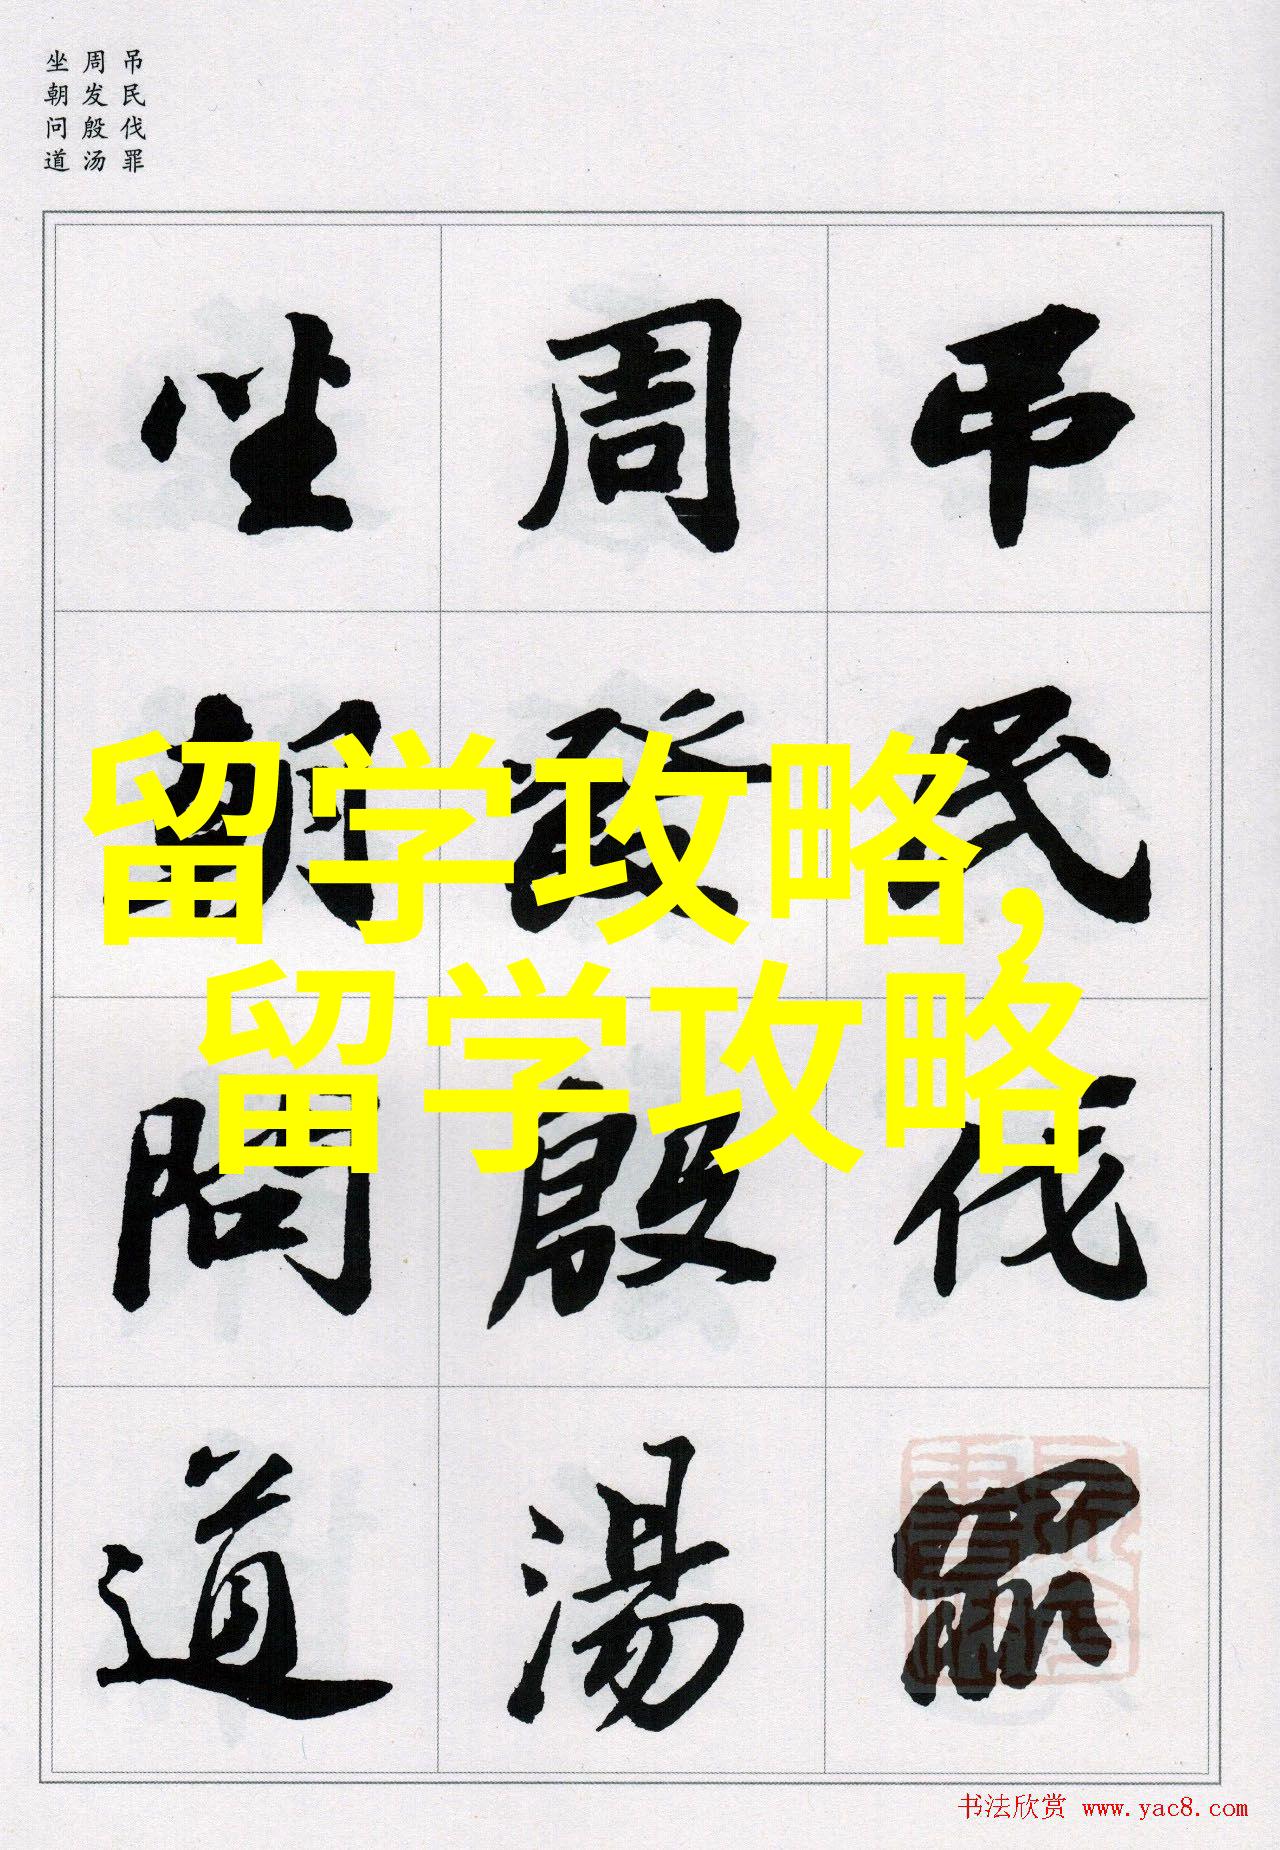 吊民伐罪
周发殷汤
坐朝问道
吊民伐罪
周發殷湯
坐朝問道
留学攻略,
留学攻略
书法欣赏 www.yac8.com